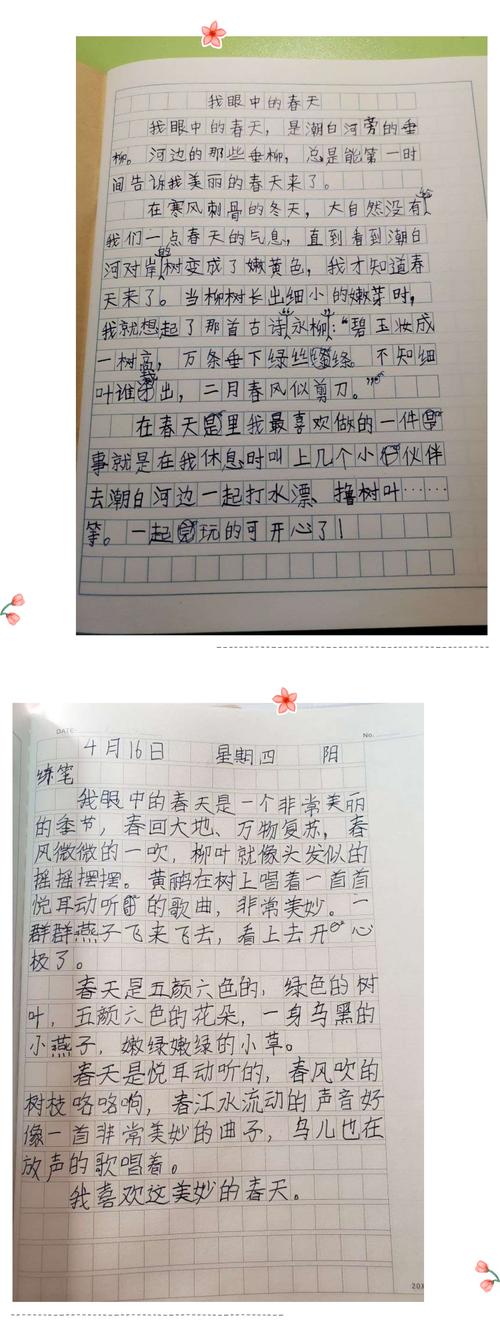 我眼中的春天
我眼中的春天，是潮白河旁的垂
柳。河边的那些垂柳，总是能第一时
间告诉我美丽的春天来了。
在寒风刺骨的冬天，大自然没有
我们一点春天的气息，直到看到潮白
河对岸树变成了嫩黄色，我才知道春
天来了。当柳树长出细小的嫩芽时，
我就想起了那首古诗永柳：“碧玉妆成
一树高，万条垂下绿丝绦。不知细
叶谁出，二月春风似剪刀。”
在春天里我最喜欢做的一件
事就是在我休息时叫上几个小伙伴
去潮白河边一起打水漂、撸树叶……
等。一起玩的可开心了！
DATE
No.
4月16日 星期四 阳
练笔
我眼中的春天是一个非常美丽
的季节，春回大地、万物复苏，春
风微微的一吹，柳叶就像头发似的
摇摇摆摆。黄鹂在树上唱着一首首
悦耳动听的歌曲，非常美妙。一
群群燕子飞来飞去，看上去开心
极了。
春天是五颜六色的，绿色的树
叶，五颜六色的花朵，一身乌黑的
小燕子，嫩绿嫩绿的小草。
春天是悦耳动听的，春风吹的
树枝咯咯响，春江水流动的声音好
像一首非常美妙的曲子，鸟儿也在
放声的歌唱着。
我喜欢这美妙的春天。